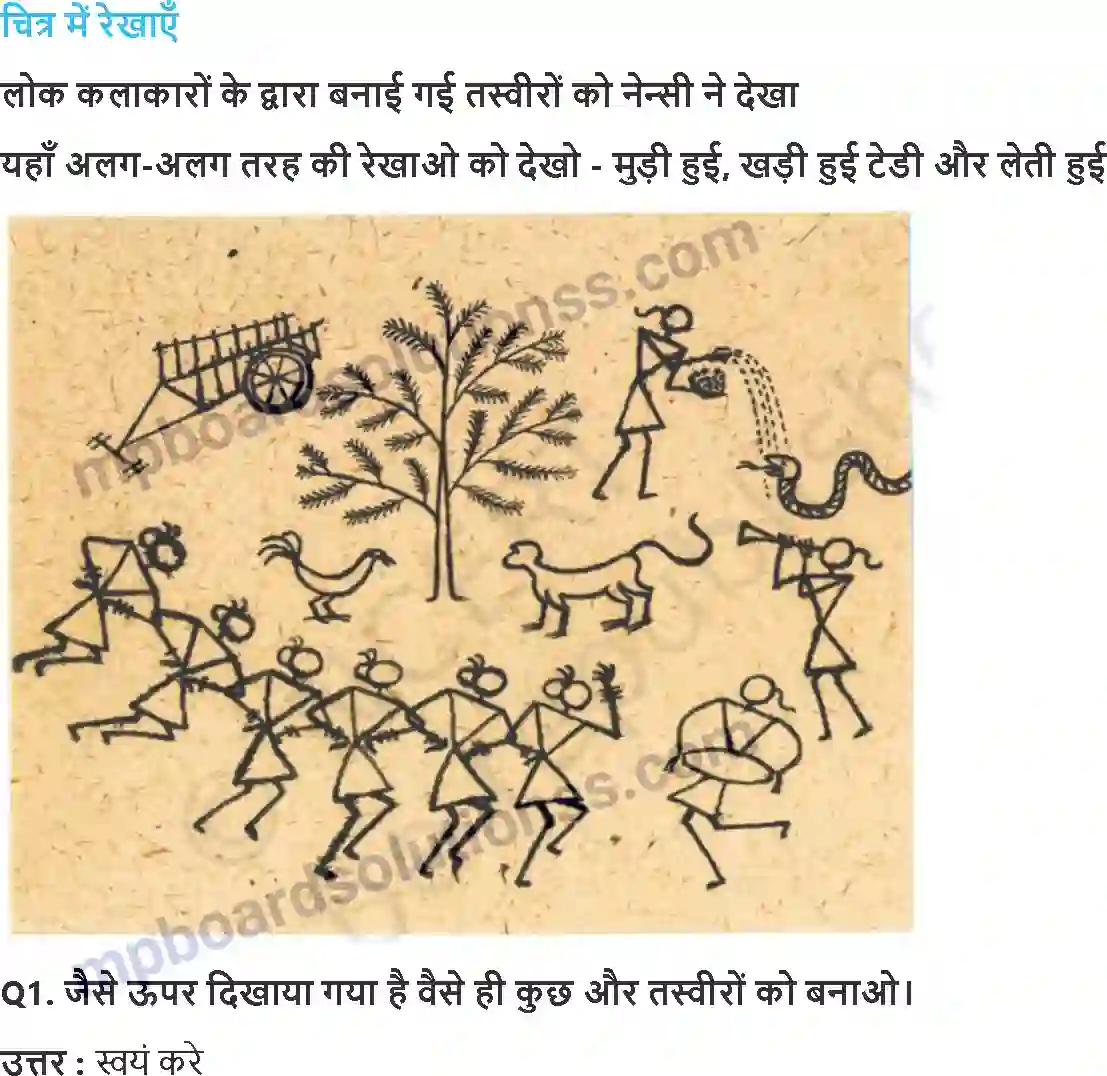 चित्र में रेखाएँ
लोक कलाकारों के द्वारा बनाई गई तस्वीरों को नेन्सी ने देखा
यहाँ अलग-अलग तरह की रेखाओ को देखो - मुड़ी हुई, खड़ी हुई टेडी और लेती हुई
mpboardsolutionss.com
mpboardsolutionss.com
Q1. जैसे ऊपर दिखाया गया है वैसे ही कुछ और तस्वीरों को बनाओ।
उत्तर : स्वयं करे